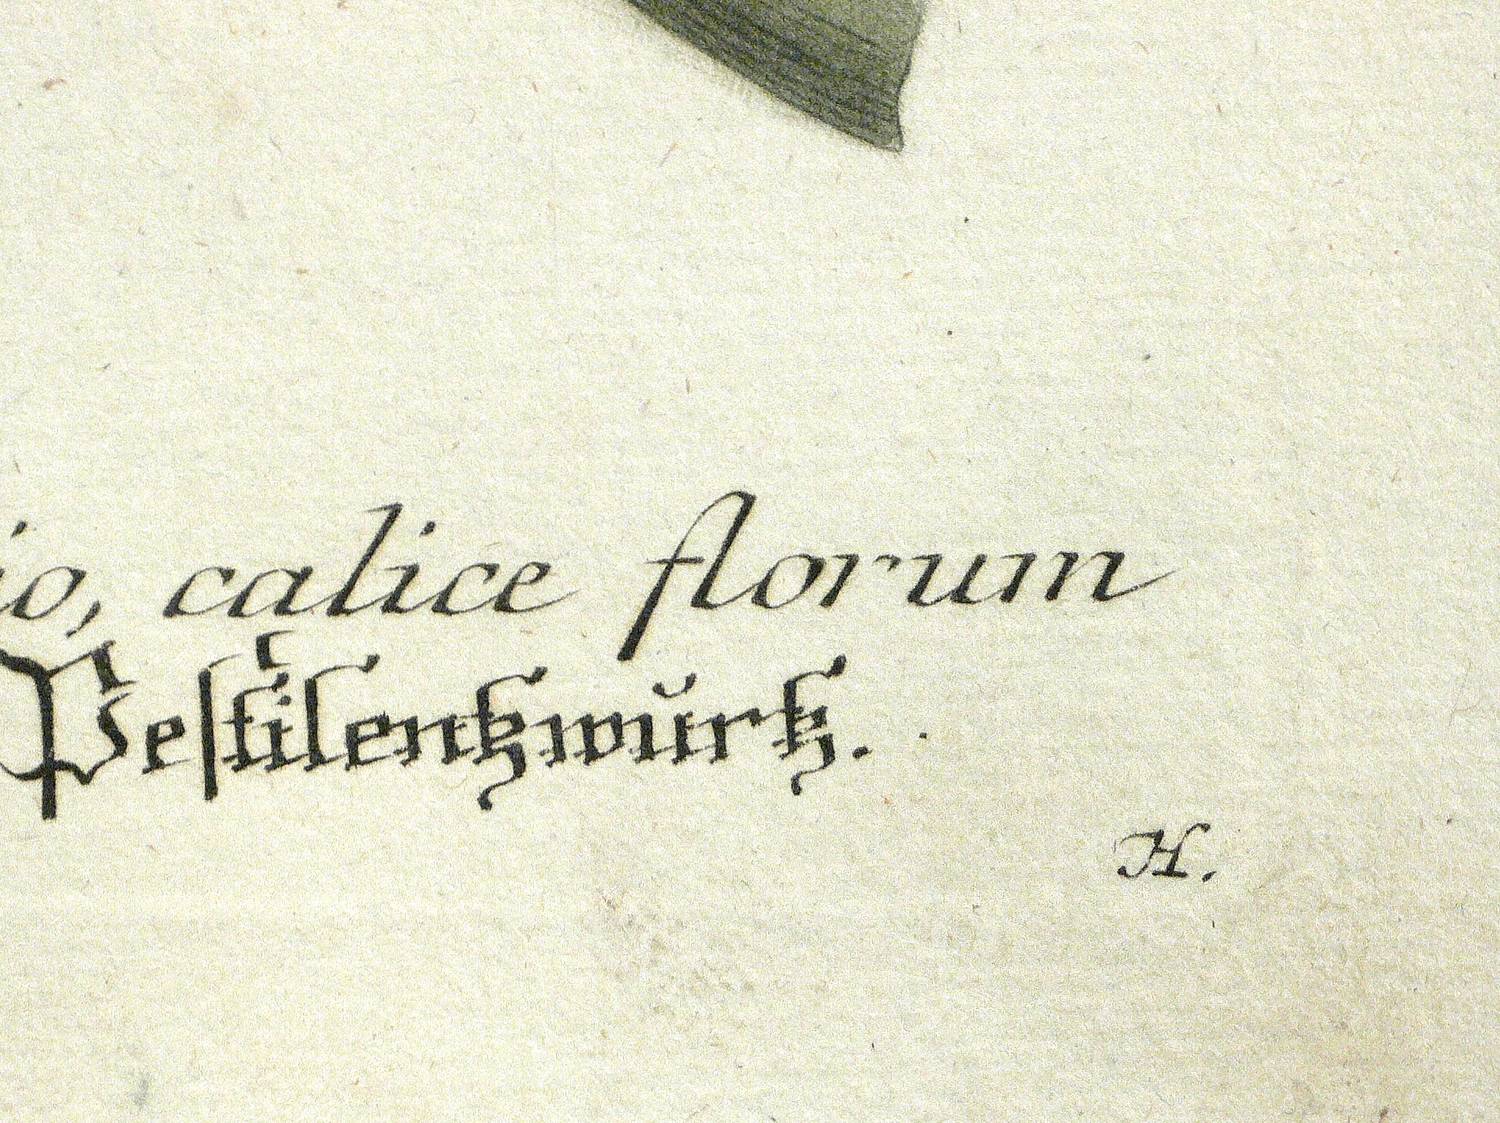 io, calice florum
Peſtilentzwŭrtz.
H.